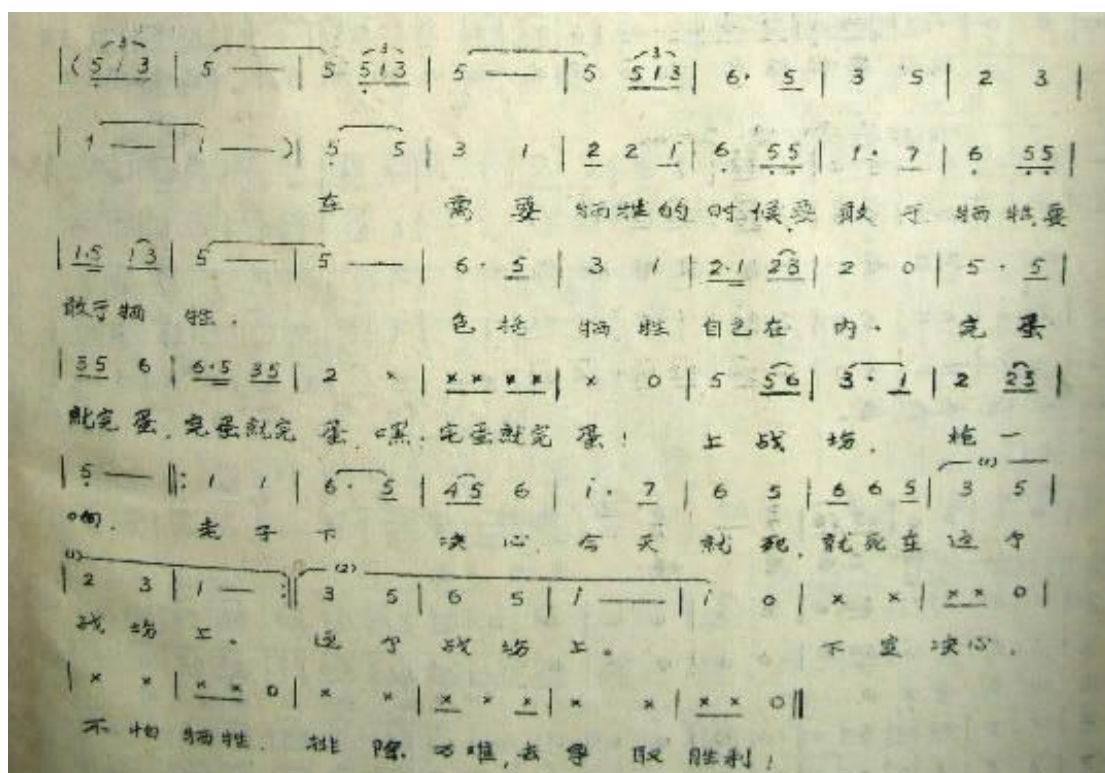 |( 5 1 3 | 5 — | 5 5 1 3 | 5 — | 5 5 1 3 | 6· 5 | 3 5 | 2 3 |
| 1 — | 1 — )| 5 5 | 3 1 | 2 2 1 | 6 5 5 | 1· 7 | 6 5 5 |
在 需要 牺牲的时候要 敢于 牺牲,要
| 1·5 1 3 | 5 — | 5 — | 6· 5 | 3 1 | 2·1 2 3 | 2 0 | 5· 5 |
敢于牺 牲. 包括 牺牲 自己在 内. 完蛋
| 3 5 6 | 6·5 3 5 | 2 × | × × × × | × 0 | 5 5 6 | 3· 1 | 2 2 3 |
就完蛋,完蛋就完 蛋,嘿,完蛋就完 蛋! 上战 场. 枪一
| 5 — ‖: 1 1 | 6· 5 | 4 5 6 | i· 7 | 6 5 | 6 6 5 | 3 5 |
响. 老子 下 决心,今天 就死,就死在 这个
(1) (2)
| 2 3 | 1 — :‖ 3 5 | 6 5 | i — | i 0 | × × | × × 0 |
战场 上. 这个 战场 上。 下定 决心,
| × × | × × 0 | × × | × × × | × × | × × 0 ‖
不怕 牺牲. 排除 万难,去 争取 胜利!